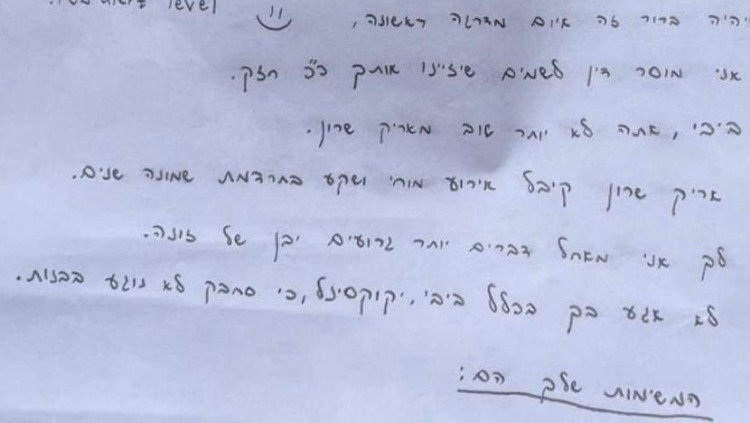 level
יהיה ברור זה איום מדרגה ראשונה,
אני מוסר דין לשמים שיזיינו אותך כ"כ חזק.
ביבי, אתה לא יותר טוב מאריק שרון.
אריק שרון קיבל אירוע מוחי ושקע בתרדמת שמונה שנים.
לך אני מאחל דברים יותר גרועים יבן של זונה.
לא אגע בך בכלל ביבי, יקוקסינל, כי סחבק לא נוגע בבנות.
המשימות שלך הם: